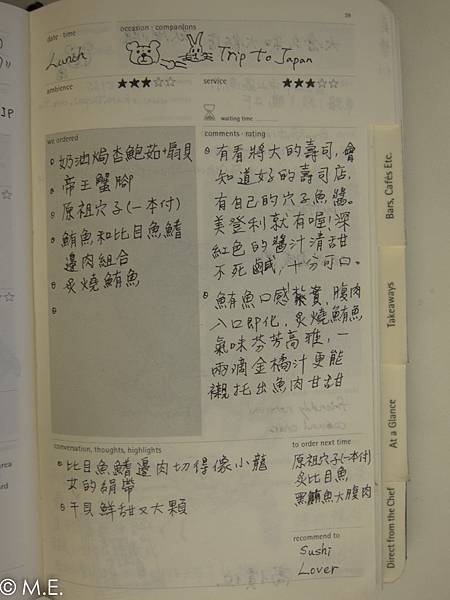 28
date · time
occasion · companions
Lunch
Trip to Japan
ambience ★★★☆☆
service ★★★☆☆
waiting time
we ordered
奶油焗杏鮑茹+扇貝
帝王蟹腳
原祖穴子(一本付)
鮪魚和比目魚鰭
邊肉組合
炙燒鮪魚
comments · rating
有看將大的壽司,會
知道好的壽司店,
有自己的穴子魚醬。
美登利就有喔!深
紅色的醬汁清甜
不死鹹,十分可口。
鮪魚口感紮實,腹肉
入口即化,炙燒鮪魚
氣味芬芳高雅,一
兩滴金橘汁更能
襯托出魚肉甘甜
conversation, thoughts, highlights
比目魚鰭邊肉切得像小龍
女的絹帶
干貝鮮甜又大顆
to order next time
原祖穴子(一本付)
炙比目魚
黑鮪魚大腹肉
recommend to
Sushi
Lover
Bars, Cafés Etc.
Takeaways
At a Glance
Direct from the Chef
© M.E.